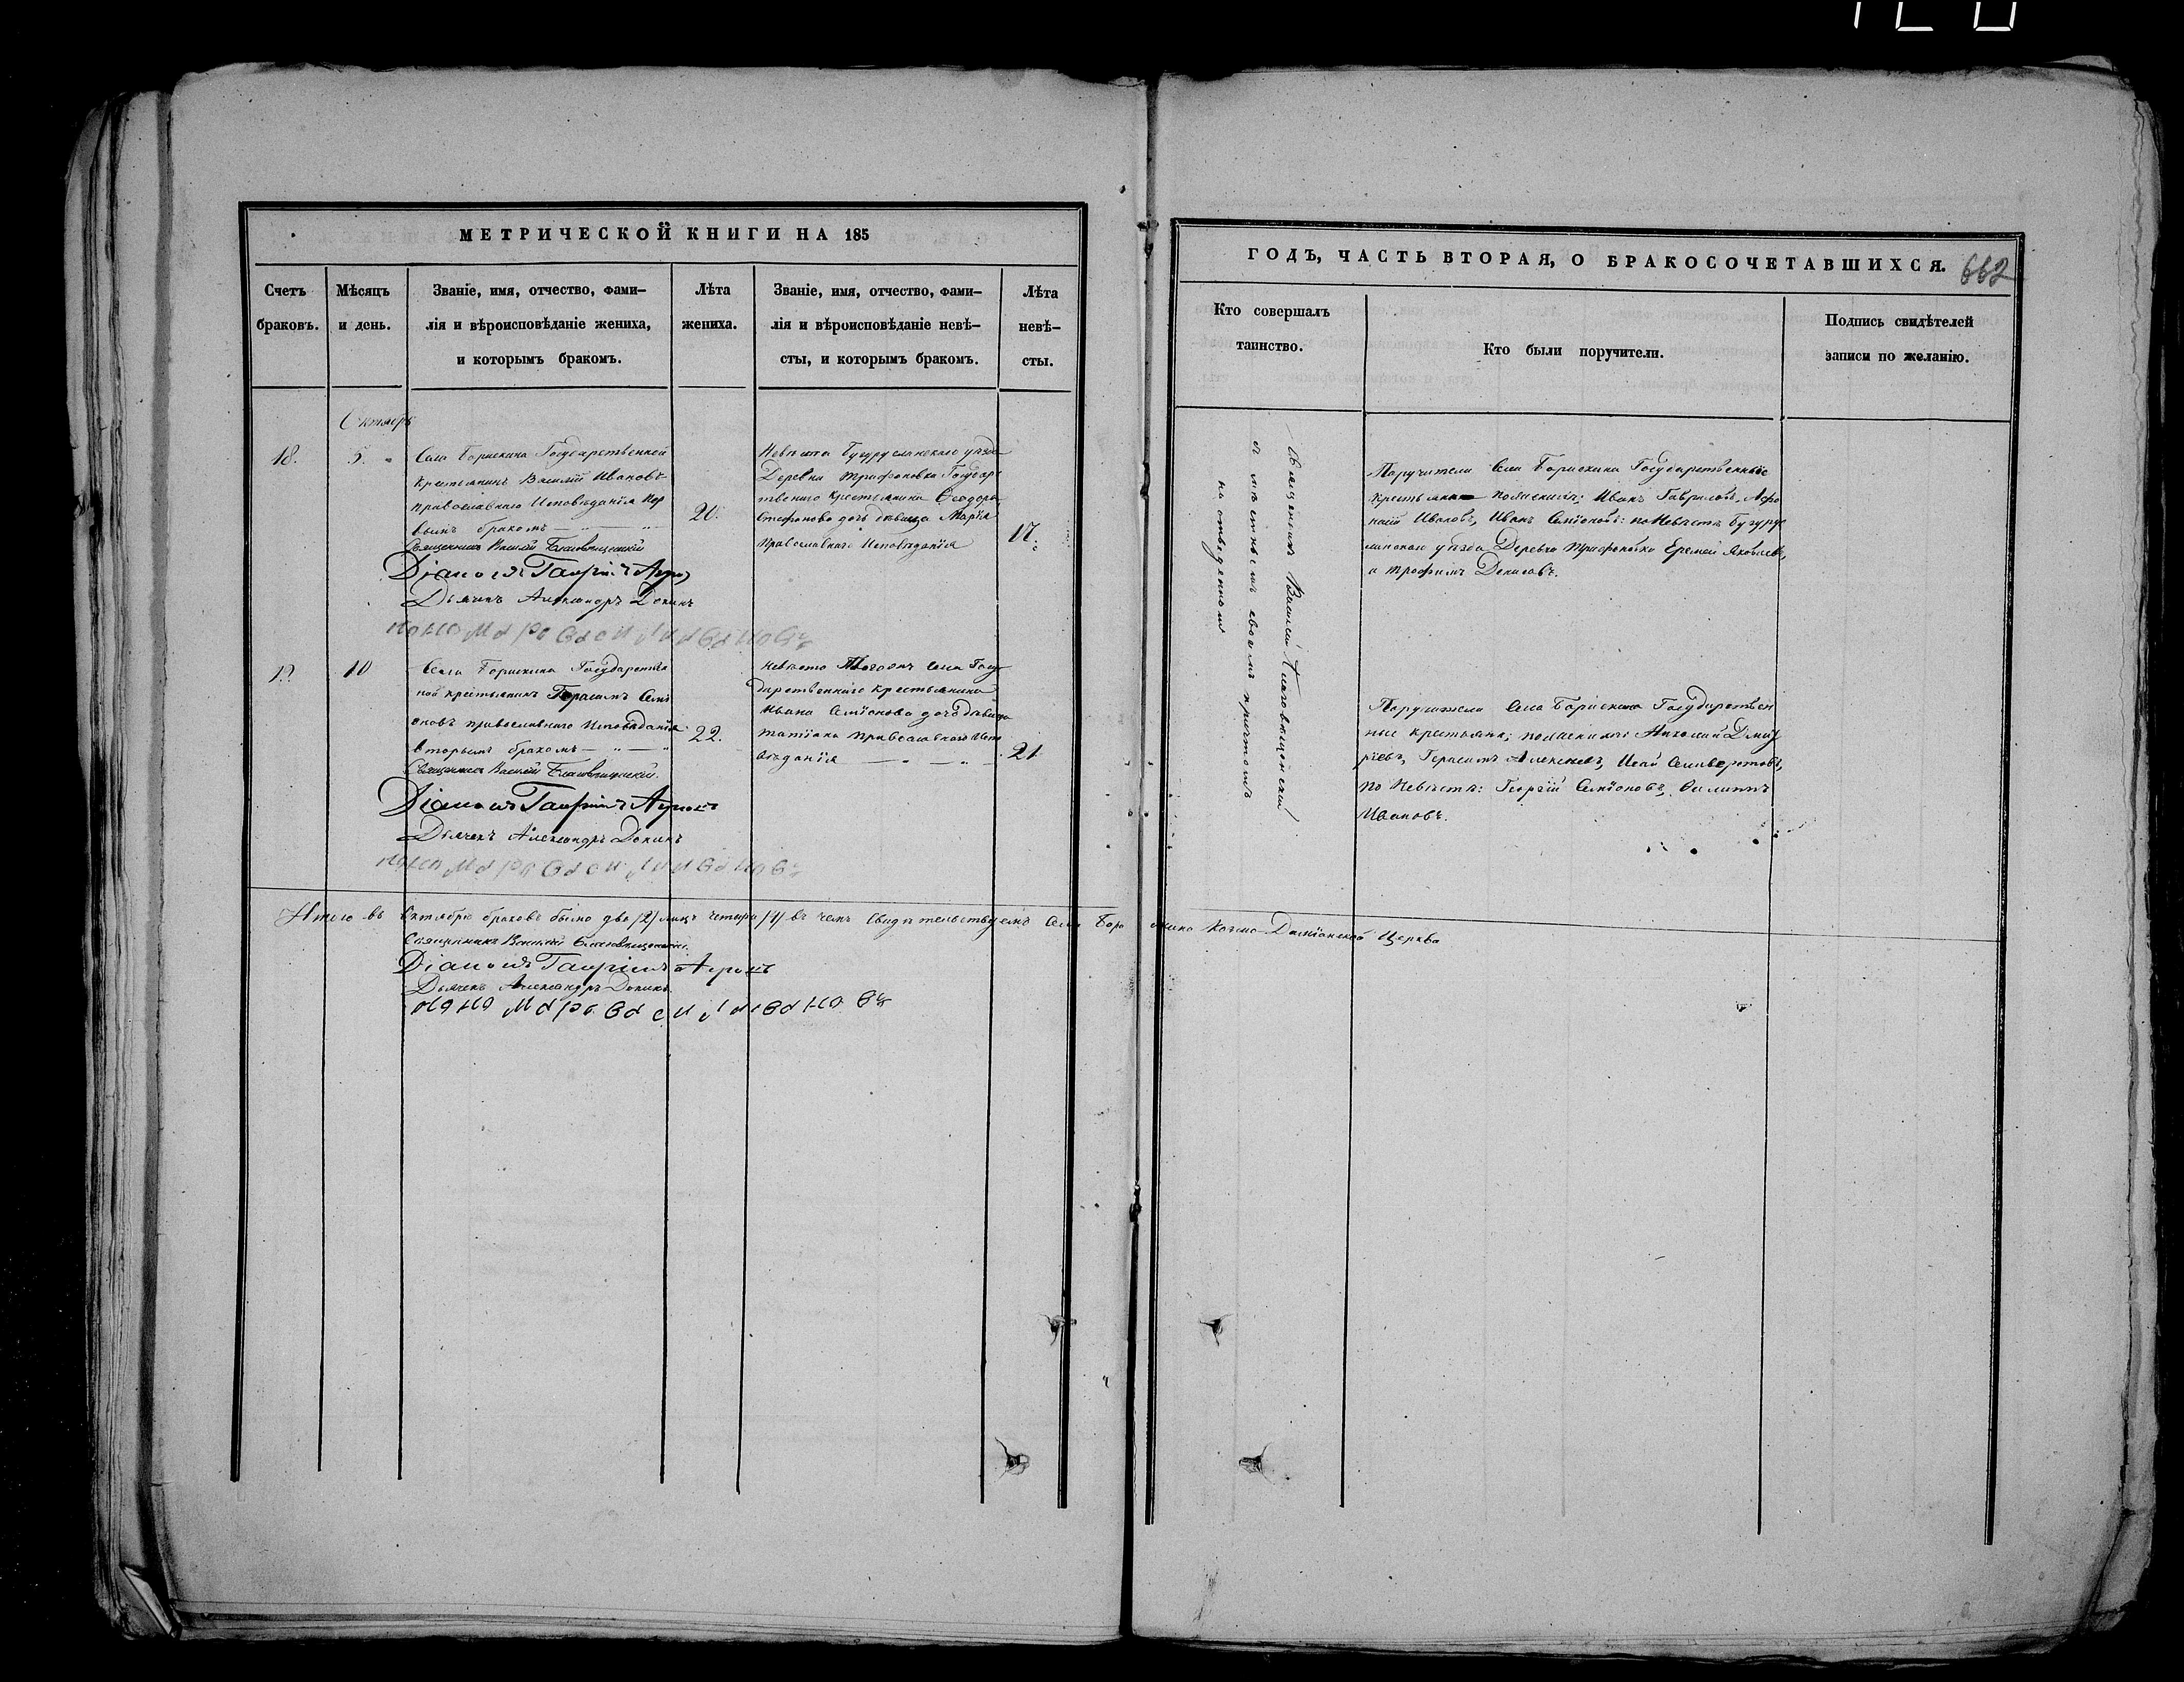 МЕТРИЧЕСКОЙ КНИГИ НА 185
Счетъ браковъ.
Мѣсяцъ и день.
Званіе, имя, отчество, фами-
лія и вѣроисповѣданіе жениха,
и которымъ бракомъ.
Лѣта жениха.
Званіе, имя, отчество, фами-
лія и вѣроисповѣданіе невѣ-
сты, и которымъ бракомъ.
Лѣта невѣ-
сты.
Октябрь
18.
5.
Села Борискина Государственной
крестьянинъ Василій Ивановъ
православнаго Исповѣданія Пер
вымъ бракомъ
Священникъ Василій Благовѣщенскій
Діаконъ Гавріилъ
Дьячекъ Александръ Докинъ
20.
Невѣста Бугурусланскаго уѣзда
Деревни Трифоновки Государ
твеннаго крестьянина Ѳеодора
Стефанова дочь дѣвица Марія
Православнаго Исповѣданія
17.
19.
10
Села Борискина Государствен
ной крестьянинъ Герасимъ Семі
оновъ православнаго Исповѣданія
вторымъ бракомъ
Священникъ Василій Благовѣщенскій.
Діаконъ Гавріилъ
Дьячекъ Александръ Докинъ
22.
Невѣста села Госу
дарственнаго крестьянина
Ивана Семіонова дочь дѣвица
Татіана православнаго Испо
вѣданія
21.
Итого въ Октябрѣ браковъ было два /2/ лицъ четыре /4/ въ чемъ Свидѣтельствуемъ Села Бори
Священникъ Василій Благовѣщенскій.
Діаконъ Гавріилъ
Дьячекъ Александръ Докинъ.
ГОДЪ, ЧАСТЬ ВТОРАЯ, О БРАКОСОЧЕТАВШИХСЯ.
662
Кто совершалъ
таинство.
Кто были поручители.
Подпись свидѣтелей
записи по желанію.
Священникъ Василій Благовѣщенскій
съ мѣстнымъ своимъ причтомъ
Поручители Села Борискина Государственные
крестьяна по женихѣ: Иванъ Гавриловъ, Афо
насій Ивановъ, Иванъ Семіоновъ: по Невѣстѣ Бугурус
ланскаго уѣзда Деревни Трифоновки Еремей Яковлевъ,
и Трофимъ Денисовъ.
Поручители Села Борискина Государствен
ные крестьяна; по женихѣ: Николай Дмит
ріевъ, Герасимъ Алексѣевъ, Исай Селиверстовъ,
по Невѣстѣ: Георгій Семіоновъ, Филиппъ
Ивановъ.
скина Космо-Даміанской Церкви